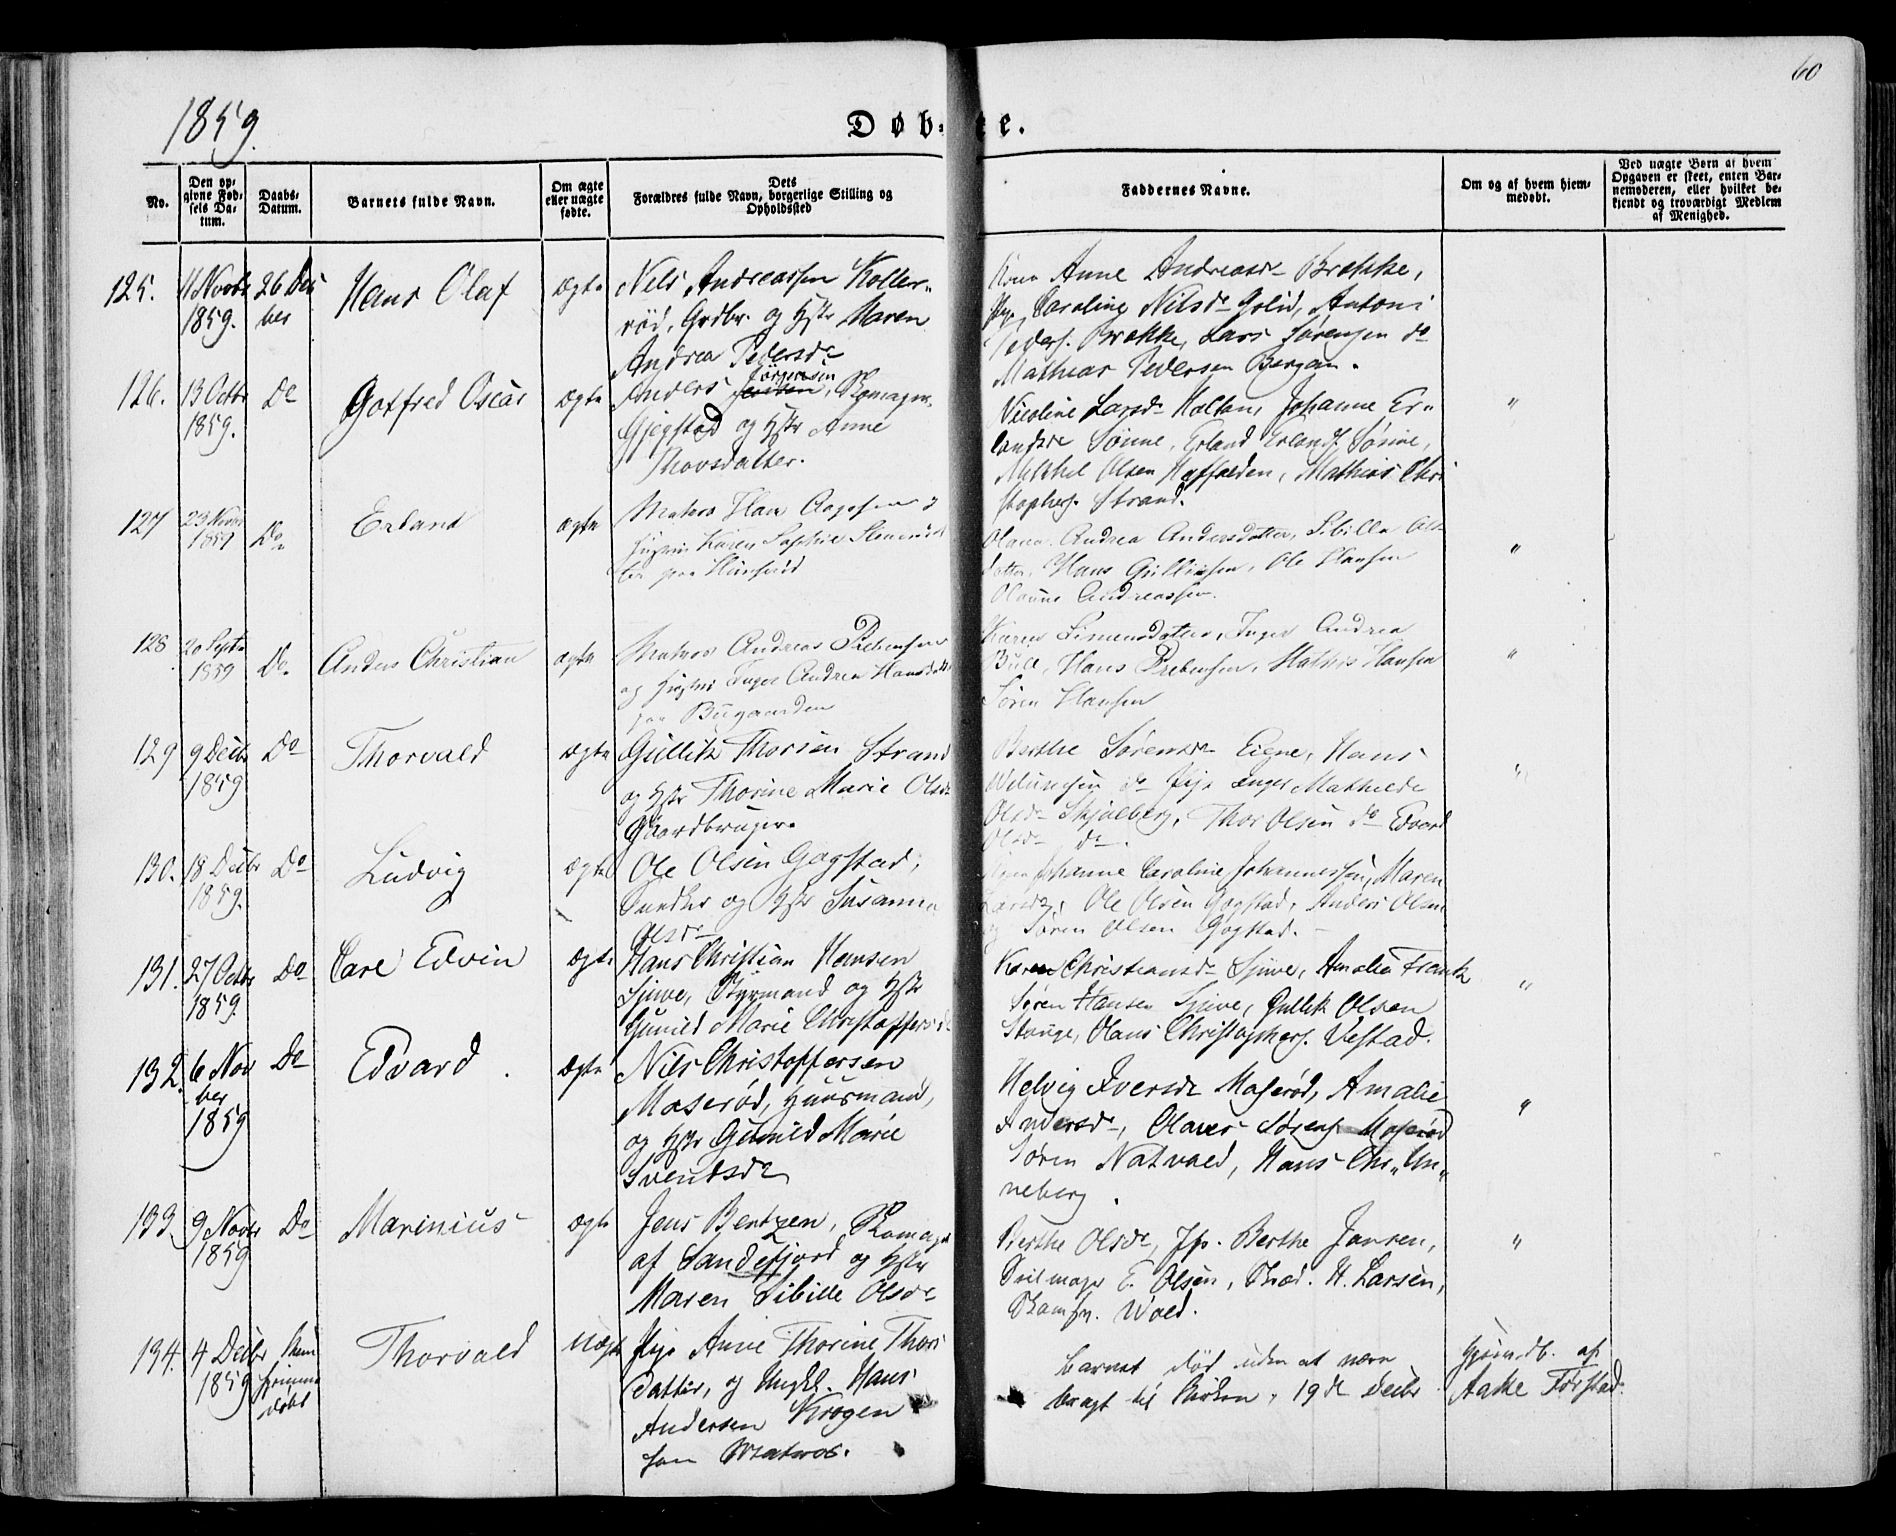 60
1859.
Døbte.
No.
Den opgivne Fødsels Datum.
Daabs-Datum.
Barnets fulde Navn.
Om ægte eller uægte fødte.
Dets Forældres fulde Navn, borgerlige Stilling og Opholdssted
Faddernes Navne.
Om og af hvem hjemmedøbt.
Ved uægte Børn af hvem Opgaven er skeet, enten Barnemoderen, eller hvilket bekjendt og troværdigt Medlem af Menighed.
125. 11 Novbr 1859. 26 Decber Hans Olaf ægte
Nils Andreassen Koller-
rød, Grdbr. og Hstr Maren
Andrea Pedersdr
Kone Anne Andreasdr Brække,
Pige Caroline Nilsdr Golid, Antoni
Peders. Brække, Lars Sørensen do
Mathias Pedersen Bergan.
126. 13 Octbr 1859. Do Gotfred Oscar ægte
Anders Jörgensen,
Gjegstad og Hstr Anne
Thorsdatter.
Nicoline Larsdr Holtan, Johanne Er-
landsdr Sönne, Erland Erlands. Sönne,
Mikkel Olsen, Mathias Chri
stophers. Strand.
"
127 23 Novbr 1859 Do Erland ægte
Matros Hans
Hustru Karen Sophie
Olava Andrea Andersdatter, Sibille Ols-
datter, Hans Gulliksen, Ole Hansen
Olaus Andreassen.
"
128 20 Septr 1859 Do. Anders Christian ægte
Matros Andreas Prebensen
og Hustru Inger Andrea Hansdatt
paa Bugaarden
Karen Simensdatter, Inger Andrea
Bull, Hans Prebensen, Mathis Hansen
Sören Hansen
"
129 9 Decbr 1859 Do Thorvald ægte
Gullik Thorsen Strand
og Hstr Thorine Marie Olsdr
Gaardbruger.
Berthe Sørensdr Eigne, Hans
do Pige Inger Mathilde
Olsdr Skjelberg, Thor Olsen do Edvard
Olsdr do.
"
130. 18 Decbr 1859. Do Ludvig ægte
Ole Olsen Gogstad,
Snedker og Hstr Susanna
Olsdr
Johanne Caroline Johannessen, Maren
Larsdr, Ole Olsen Gogstad, Anders Olsen
og Søren Olsen Gogstad.
131. 27 Octbr 1859. Do Carl Edvin ægte
Hans Christian Hansen
Sjuve, Styrmand og Hstr
Gunild Marie Christoffersdr
Karen Christiansdr Sjuve, Amalia Frank
Søren Hansen Sjuve, Gullik Olsen
Stange, Olaus Christophers. Vestad.
"
132. 6 November 1859 Do Edvard. ægte
Nils Christoffersen
Moserød, Huusmand,
og Hstr Gunild Marie
Svendsdr
Helvig Iversdr Moserød, Amalie
Andersdr, Olaves Sørens. Moserød
Søren Natvald, Hans Chr. Un-
neberg.
"
133. 9 Novbr 1859 Do Marinius ægte
Jens Bentzen,
af Sandefjord og Hstr
Maren Sibille Olsdr
Berthe Olsdr, Jfr. Berthe Jansen,
Seilmager E. Olsen, H. Larsen,
Wold.
"
134. 4 Decbr 1859 kun hjemmedøbt Thorvald uægte
Pige Anne Thorine Thors
datter, og Ungkl. Hans
Andersen Krogen
som Matros.
barnet død uden at være
bragt til Kirken, 19de Decbr
Hjemdb. af
Aake Forstad.